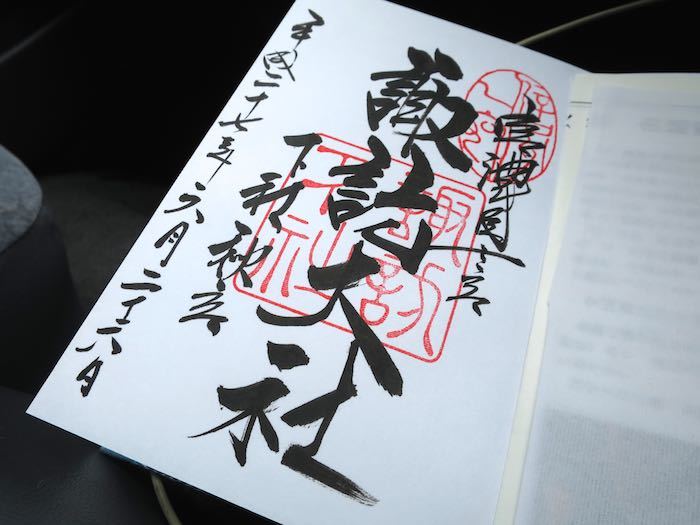 信濃國一宮
諏訪大社
下社秋宮
平成二十七年六月二十六日